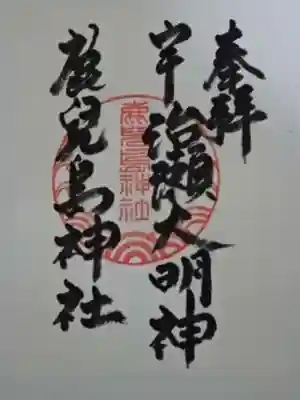 奉拝
宇治瀬大明神
鹿児島神社
鹿児島神社